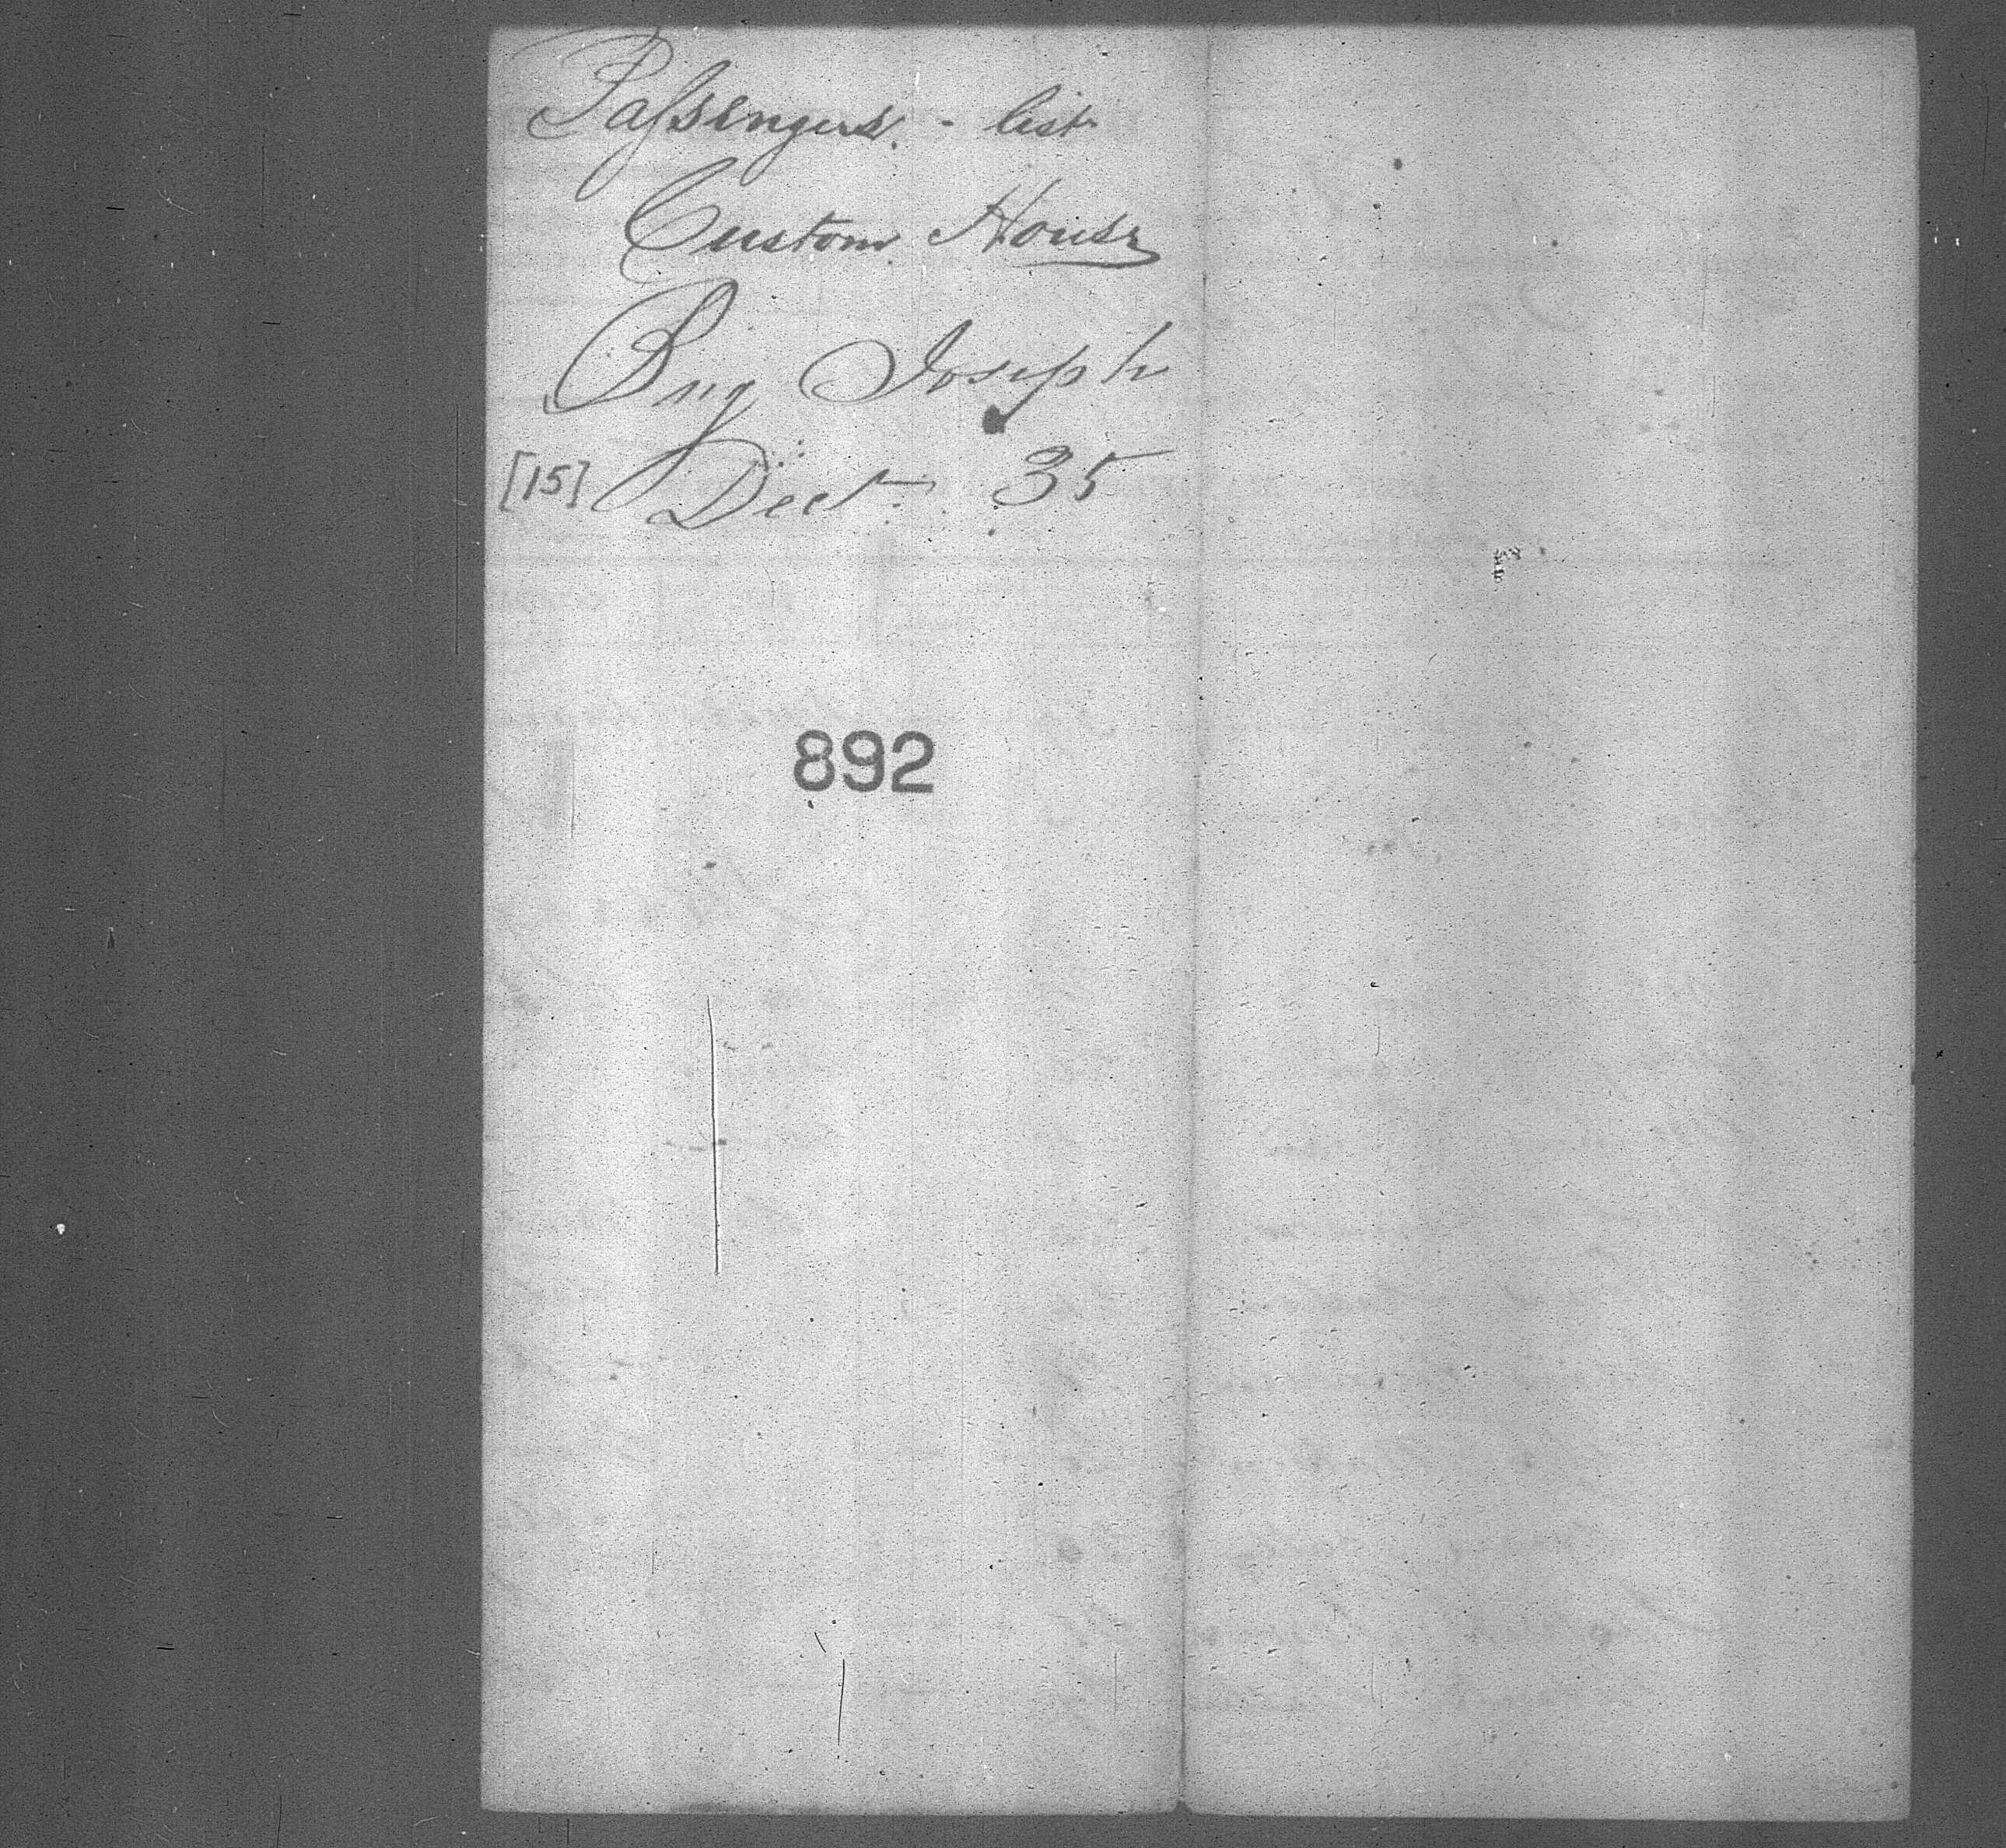 Passengers. - list
Custom House
Brig Joseph
[15] Dect. 35
892